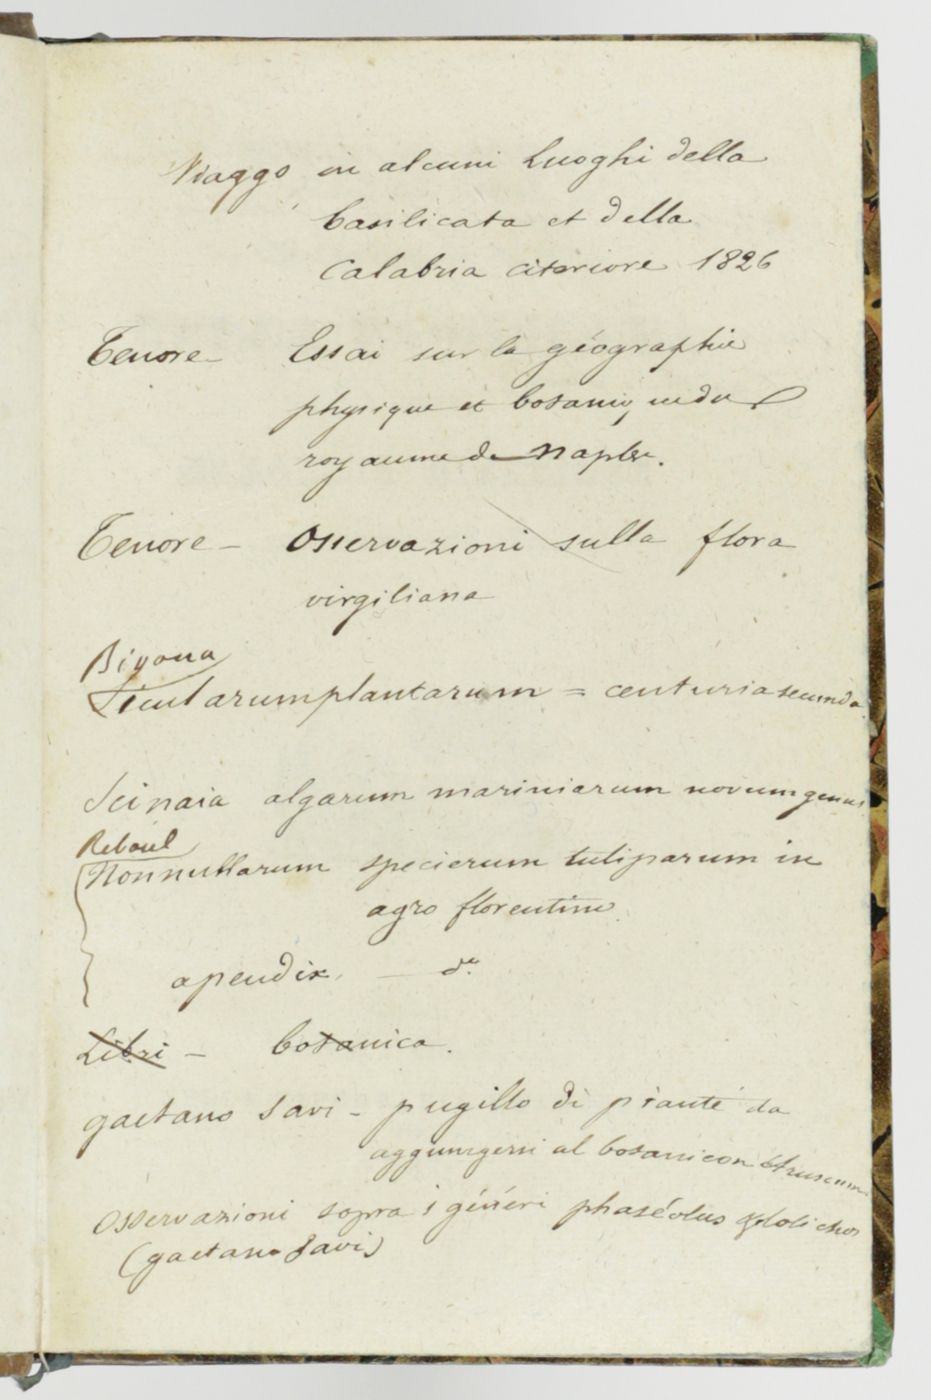 Viaggo in alcuni Luoghi della
basilicata et della
Calabria citeriore 1826
Tenore - Essai sur la géographie
physique et botanique du
royaume de Naples.
Tenore - Osservazioni sulla flora
virgiliana
Bivona
Sicularum plantarum = centuria secunda
Scinaia algarum mariniarum novum genus
Reboul
Nonnullarum specierum tuliparum in
agro florentino
apendix - do.
Libri - botanica.
gaetano Savi - pugillo di piante da
aggiungersi al botanicon étruscum
Osservazioni sopra i généri phaséolus & dolichos
(gaetano Savi)